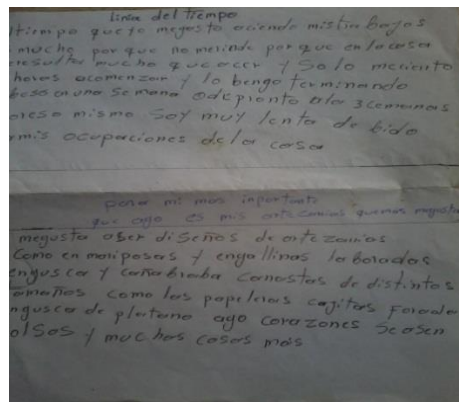 linea del tiempo
ltiempo que yo megasto aciendo mistrabajos
mucho por que no merinde por que en la casa
resulta mucho que acer y solo meciento
horas acomenzar y lo bengo terminando
beso en una Semana o de pronto alas 3 cemanas
oreso mismo Soy muy lenta de bido
mis ocupaciones de la casa
para mi mas inportante
que ago es mis artezanias que mas megusta
megusta aser diseños de artezanias
Como en mariposas y en gallinas laboradas
enguscar y caña braba Canastas de distintos
tamaños como las papeleras cajitas Forada
nguscar de platano ago corazones Se asen
olsos y muchas cosas mas